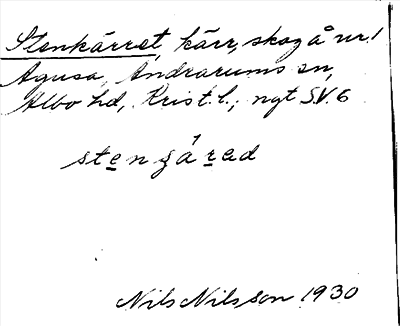 Stenkärret, kärr, skog å nr 1
Agusa, Andrarums sn,
Albo hd, Krist. l.; ngt S.V. 6
Nils Nilsson 1930